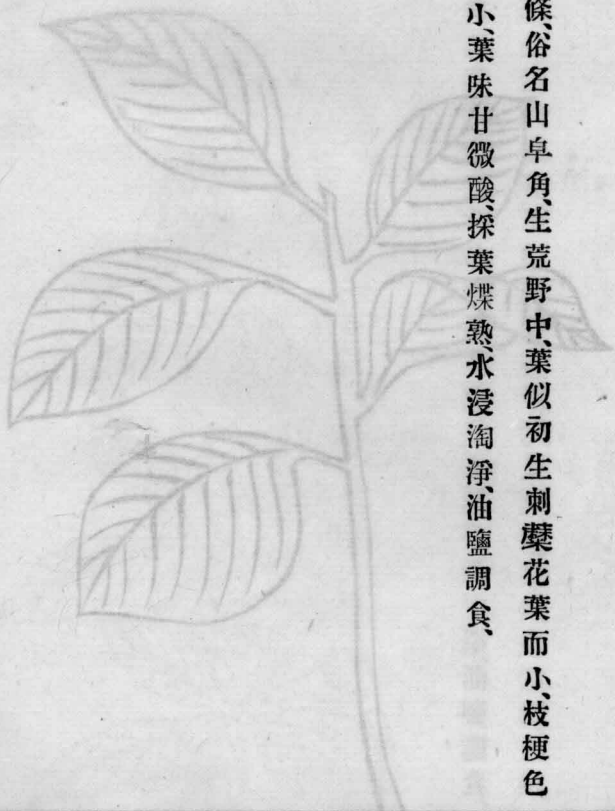 條、俗名山皁角、生荒野中、葉似初生刺蘗花葉而小、枝梗色
小、葉味甘微酸、採葉煠熟、水浸淘淨、油鹽調食、